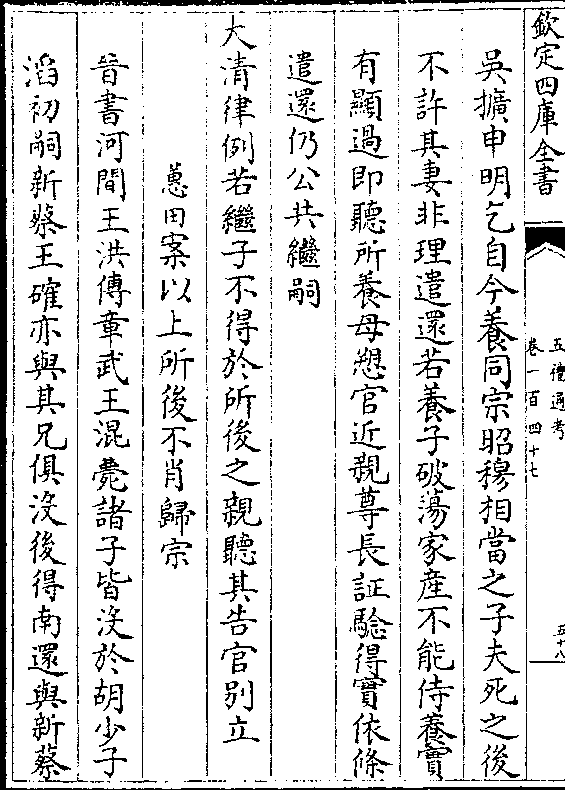 欽定四庫全書
五禮通考
卷一百四十七
五十八
吳擴申明乞自今養同宗昭穆相當之子夫死之後
不許其妻非理遣還若養子破蕩家産不能侍養實
有顯過即聽所養母愬官近親尊長証驗得實依條
遣還仍公共繼嗣
大清律例若繼子不得於所後之親聽其告官别立
蕙田案以上所後不肖歸宗
晉書河間王洪傳章武王混薨諸子皆没於胡少子
滔初嗣新蔡王確亦與其兄俱没後得南還與新蔡